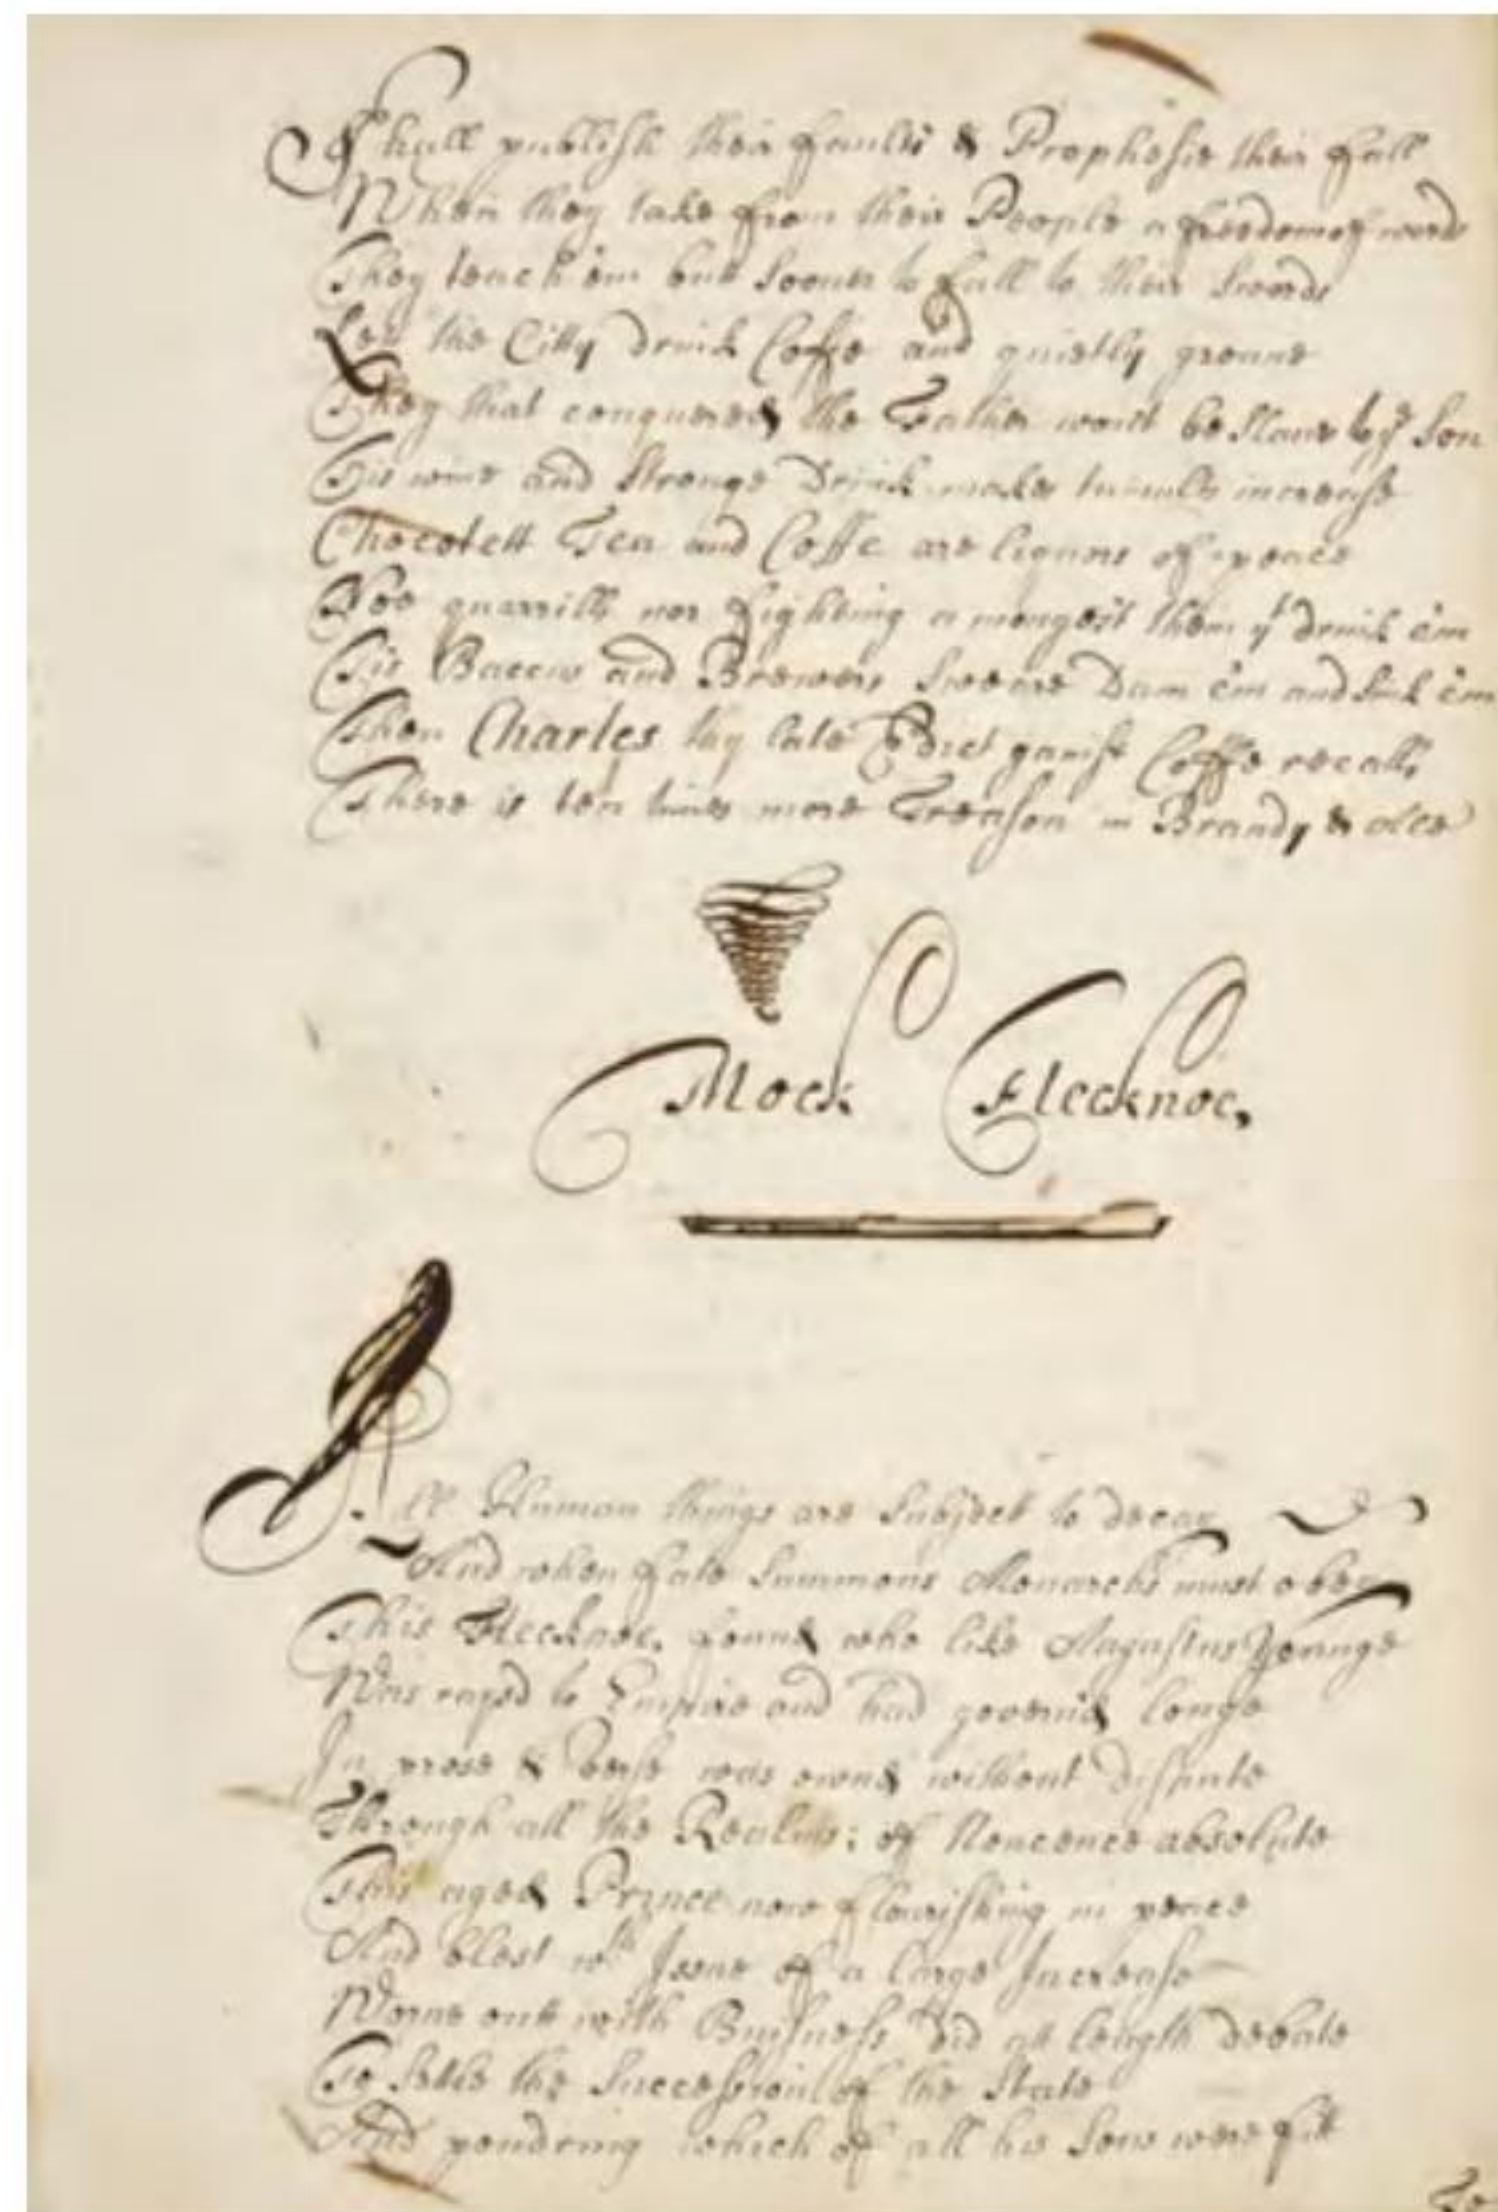 Shall publish their faults & Prophesie their fall
When they take from their People a freedome of words
They teach em but sooner to fall to their swords
Let the Citty drink Coffe and quietly groane
They that conquered the Father wont be slaves by ye Son
Tis wine and stronge Drink makes tumults increase
Chocolett Tea and Coffe are liquors of peace
Noe quarrills nor fighting amongest them yt drink em
Tis Baccus and Brewers sweare Dam em and sink em
Then Charles thy late Edict gainst Coffe recall
There is ten times more Treason in Brandy & Ale
Mock Flecknoe,
All Human things are subject to decay
And when fate summons Monarchs must obey
This Flecknoe found who like Augustus Younge
Was raysd to Empire and had govern'd longe
In prose & verse was own'd without dispute
Through all the Realms: of Noncence absolute
This aged Prince now flourishing in peace
And blest wth Issue of a large Increase
Worne outt with Business did att length debate
To settle the Succession of the State
And pondring which of all his Sons were fitt
To